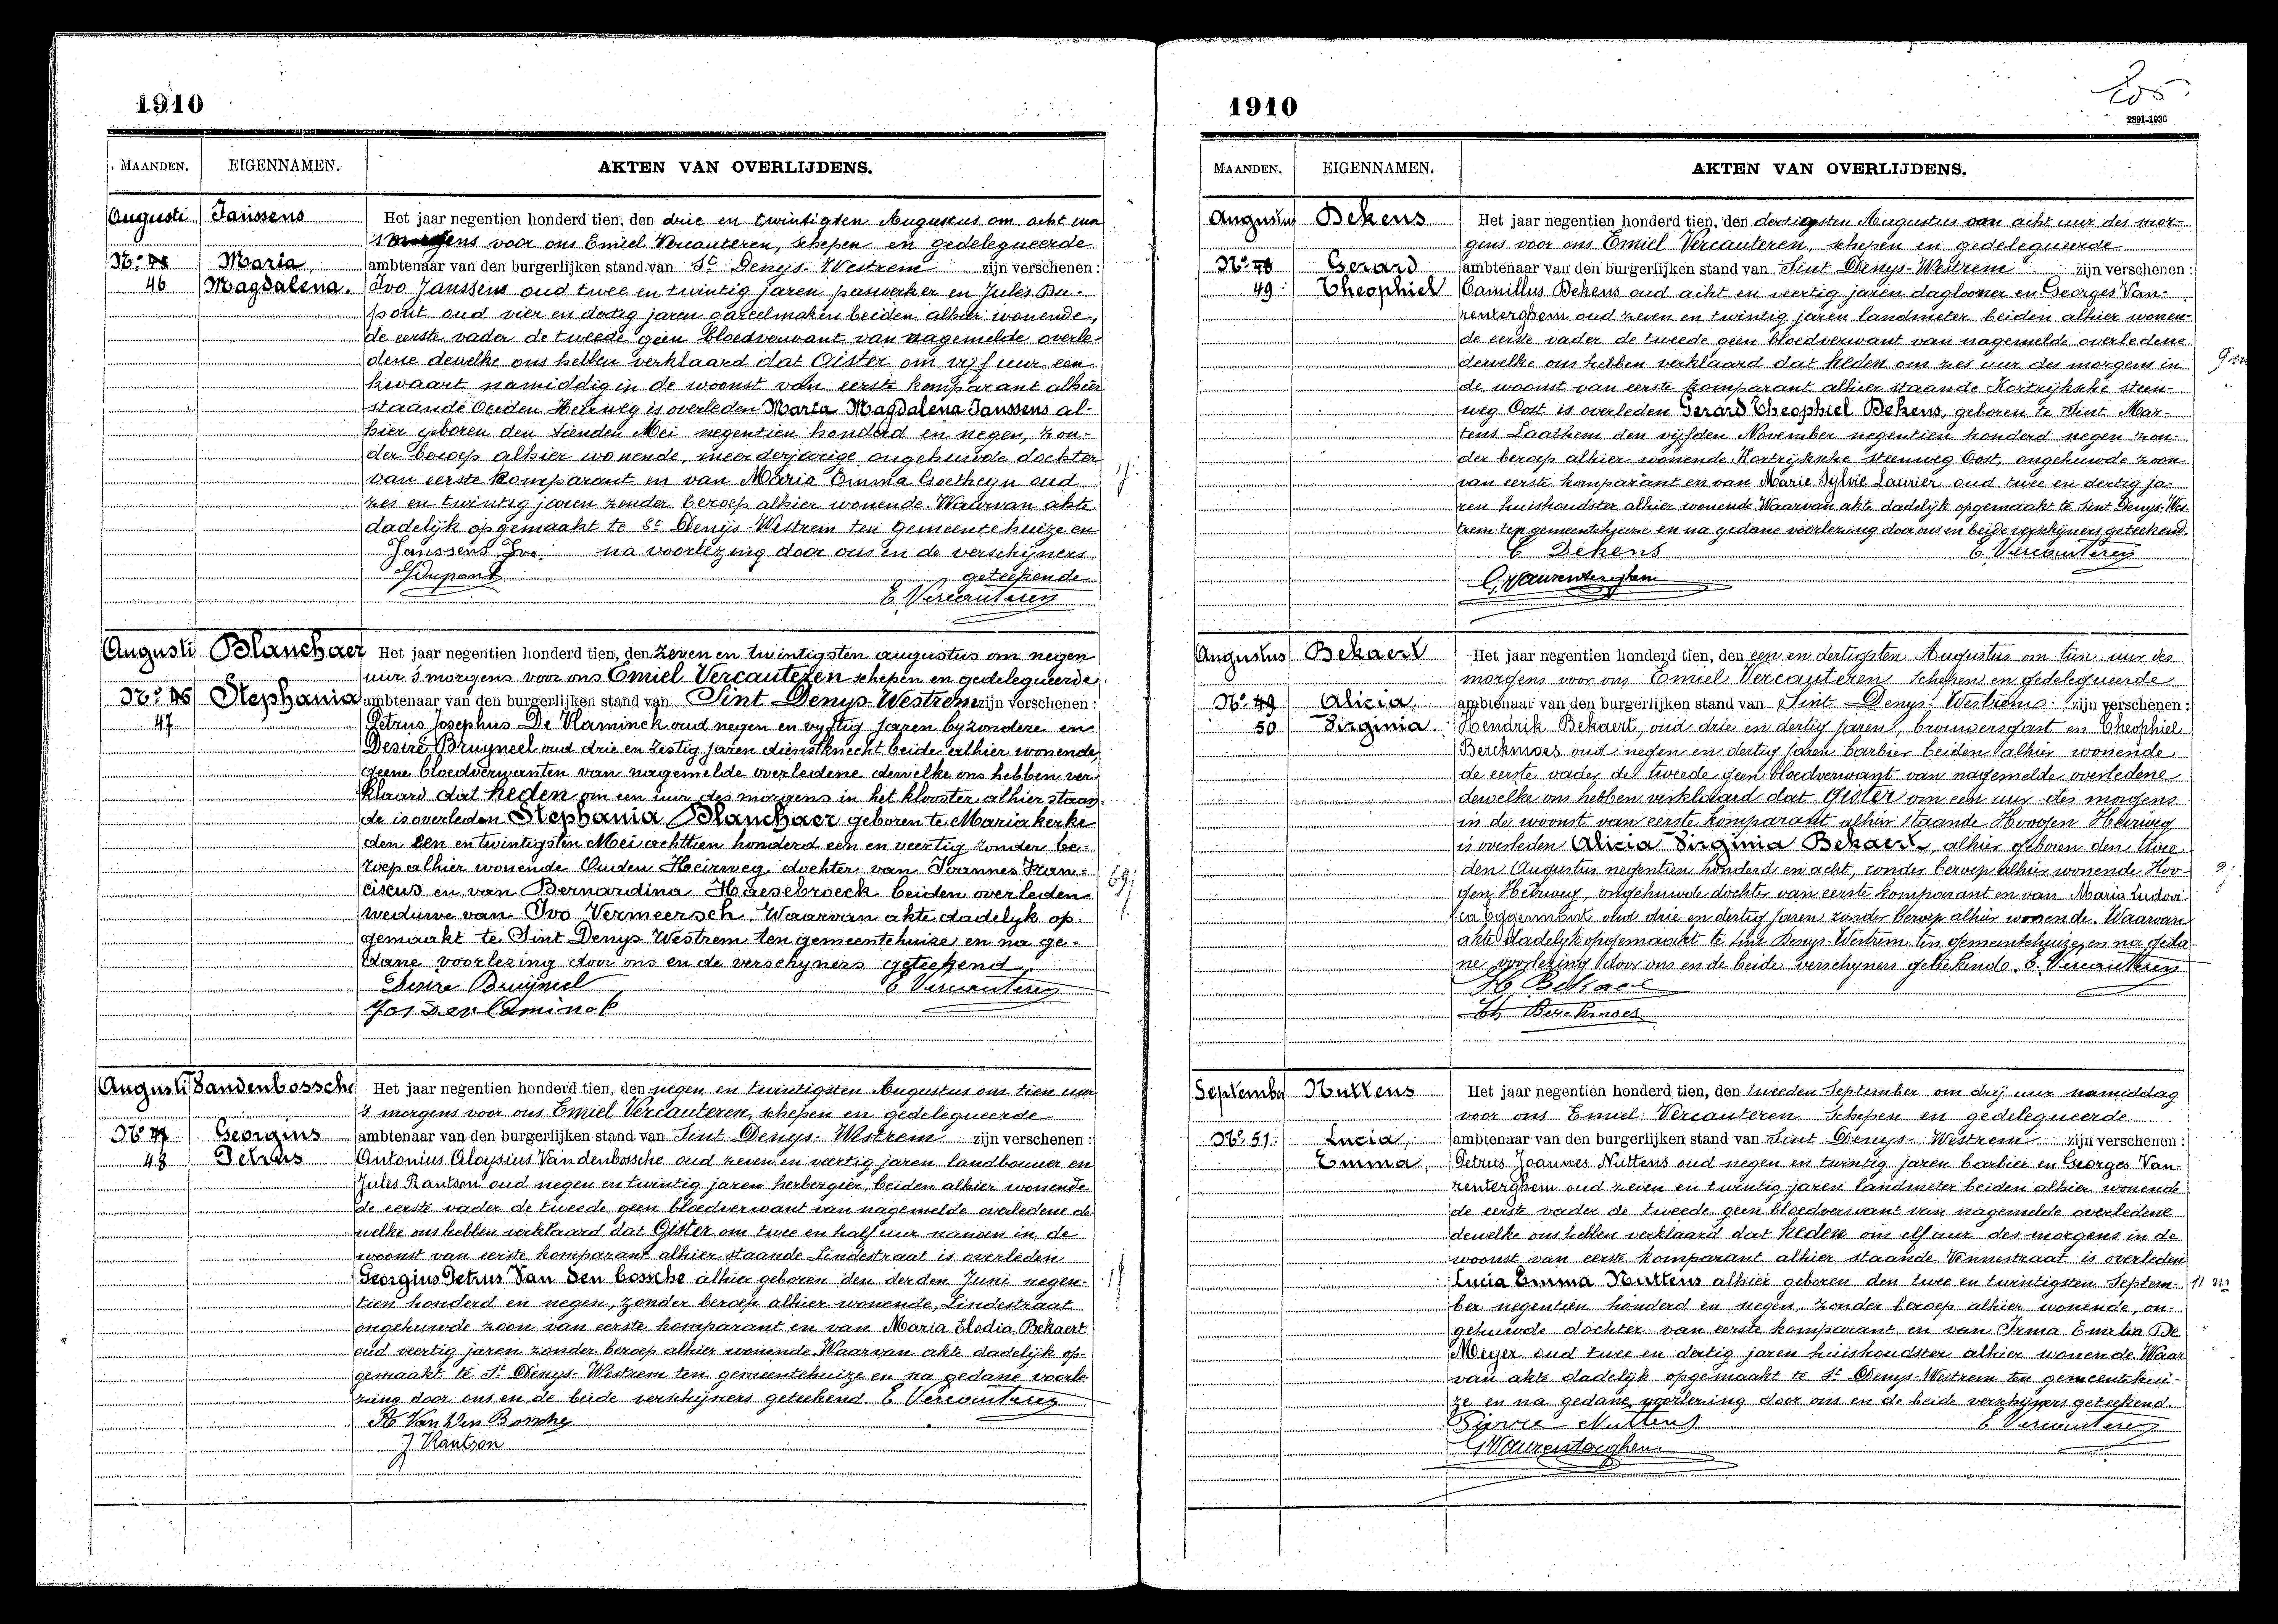 1910
MAANDEN. EIGENNAMEN. AKTEN VAN OVERLIJDENS.
Augusti Janssens Het jaar negentien honderd tien, den drie en twintigsten Augustus om acht uur
's morgens voor ons Emiel Vercauteren, schepen en gedelegueerde
No: Maria, ambtenaar van den burgerlijken stand van St Denys-Westrem zijn verschenen:
46 Magdalena. Ivo Janssens oud twee en twintig jaren paswerker en Jules Du-
pont oud vier en dertig jaren gareelmaker beiden alhier wonende,
de eerste vader de tweede geen bloedverwant van nagemelde overle-
dene dewelke ons hebben verklaard dat Gister om vijf uur een
kwaart namiddig in de woonst van eerste komparant alhier
staande Ouden Heirweg is overleden Maria Magdalena Janssens al-
hier geboren den tienden Mei negentien honderd en negen, zon-
der beroep alhier wonende, meerderjarige ongehuwde dochter
van eerste komparant en van Maria Emma Goetheyn oud
zes en twintig jaren zonder beroep alhier wonende. Waarvan akte
dadelijk opgemaakt te St Denijs-Westrem ten gemeentehuize en
Janssens Ivo na voorlezing door ons en de verschijners
JDupont geteekende
E. Vercauteren
Augusti Blanchaer Het jaar negentien honderd tien, den Zeven en twintigsten augustus om negen
uur 's morgens voor ons Emiel Vercauteren schepen en gedelegueerde
No: 46 Stephania ambtenaar van den burgerlijken stand van Sint Denys-Westrem zijn verschenen:
47 Petrus Josephus De Vlaminck oud negen en vyftig jaren byzondere en
Desiré Bruyneel oud drie en zestig jaren dienstknecht beide alhier wonende,
geene bloedverwanten van nagemelde overleidene dewelke ons hebben ver-
klaard dat heden om een uur des morgens in het klooster alhier staan-
de is overleden Stephania Blanchaer geboren te Mariakerke
den een en twintigsten Mei achttien honderd een en veertig zonder be-
roep alhier wonende Ouden Heirweg dochter van Joannes Fran-
ciscus en van Bernardina Haesebroeck beiden overleden 69j
weduwe van Ivo Vermeersch. Waarvan akte dadelyk op-
gemaakt te Sint Denys Westrem ten gemeentehuize en na ge-
dane voorlezing door ons en de verschyners geteekend
Desire Bruijneel E Vercauteren
Jos De Vlaminck
Augusti Vandenbossche Het jaar negentien honderd tien, den negen en twintigsten Augustus om tien uur
's morgens voor ons Emiel Vercauteren, schepen en gedelegueerde
No 47 Georgius ambtenaar van den burgerlijken stand van Sint Denys-Westrem zijn verschenen:
48 Petrus Antonius Aloysius Vandenbossche oud zeven en veertig jaren landbouwer en
Jules Rantson oud negen en twintig jaren herbergier, beiden alhier wonende
de eerste vader de tweede geen bloedverwant van nagemelde overledene de
welke ons hebben verklaard dat Gister om twee en half uur nanoen in de
woonst van eerste komparant alhier staande Lindestraat is overleden
Georgius Petrus Van den bossche alhier geboren den derden Juni negen-
tien honderd en negen, zonder beroep alhier wonende, Lindestraat
ongehuwde zoon van eerste komparant en van Maria Elodia Bekaert
oud veertig jaren zonder beroep alhier wonende. Waarvan akte dadelijk op-
gemaakt te St Denys-Westrem ten gemeentehuize en na gedane voorle-
zing door ons en de beide verschijners geteekend E Vercauteren
A. Van Den Bossche
J Rantson
1910
205
2891-1930
MAANDEN. EIGENNAMEN. AKTEN VAN OVERLIJDENS.
Augustus Bekens Het jaar negentien honderd tien, den dertigsten Augustus om acht uur des mor-
gens voor ons Emiel Vercauteren, schepen en gedelegueerde
No. Gerard ambtenaar van den burgerlijken stand van Sint Denys-Westrem zijn verschenen:
49 Theophiel Camillus Bekens oud acht en veertig jaren daglooner en Georges Van-
renterghem oud zeven en twintig jaren landmeter beiden alhier wonen-
de eerste vader de tweede geen bloedverwant van nagemelde overledene
dewelke ons hebben verklaard dat heden om zes uur des morgens in 9 m
de woonst van eerste komparant alhier staande Kortrijksche steen-
weg Oost is overleden Gerard Theophiel Bekens, geboren te Sint Mar-
tens Laathem den vijfden November negentien honderd negen zon-
der beroep alhier wonende Kortrijksche steenweg Oost, ongehuwde zoon
van eerste komparant en van Marie Sylvie Laurier oud twee en dertig ja-
ren huishoudster alhier wonende Waarvan akte dadelijk opgemaakt te Sint Denys-Wes-
trem ten gemeentehuize en na gedane voorlezing door ons en beide verschijners geteekend.
C Bekens E. Vercauteren
G. Vanrenterghem
Augustus Bekaert Het jaar negentien honderd tien, den een en dertigsten Augustus om tien uur des
morgens voor ons Emiel Vercauteren Schepen en gedelegueerde
No. 49 Alicia, ambtenaar van den burgerlijken stand van Sint Denys-Westrem zijn verschenen:
50 Virginia. Hendrik Bekaert, oud drie en dertig jaren, brouwersgast en Theophiel
Berckmoes oud negen en dertig jaren barbier beiden alhier wonende
de eerste vader de tweede geen bloedverwant van nagemelde overledene
dewelke ons hebben verklaard dat Gister om een uur des morgens
in de woonst van eerste komparant alhier staande Hoogen Heirweg
is overleden Alicia Virginia Bekaert, alhier geboren den twee
den Augustus negentien honderd en acht, zonder beroep alhier wonende Hoo- 2j
gen Heirweg, ongehuwde dochter van eerste komparant en van Maria Ludovi-
ca Eggermont oud drie en dertig jaren zonder beroep alhier wonende. Waarvan
akte dadelijk opgemaakt te Sint Denys-Westrem ten gemeentehuize, en na geda-
ne voorlezing door ons en de beide verschyners geteekend. E. Vercauteren
H. Bekaert
Th Berckmoes
September Nuttens Het jaar negentien honderd tien, den tweeden September om drij uur namiddag
voor ons Emiel Vercauteren Schepen en gedelegueerde
No. 51. Lucia, ambtenaar van den burgerlijken stand van Sint Denys-Westrem zijn verschenen:
Emma, Petrus Joannes Nuttens oud negen en twintig jaren barbier en Georges Van-
renterghem oud zeven en twintig jaren landmeter beiden alhier wonende
de eerste vader de tweede geen bloedverwant van nagemelde overledene
dewelke ons hebben verklaard dat heden om elf uur des morgens in de
woonst van eerste komparant alhier staande Vennestraat is overleden
Lucia Emma Nuttens alhier geboren den twee en twintigsten Septem- 11 m
ber negentien honderd en negen, zonder beroep alhier wonende, on-
gehuwde dochter van eerste komparant en van Irma Emelia De
Meyer oud twee en dertig jaren huishoudster alhier wonende Waar
van akte dadelijk opgemaakt te St Denys-Westrem ten gemeentehui-
ze en na gedane voorlezing door ons en de beide verschijners geteekend.
Pierre Nuttens E Vercauteren
G Vanrenterghem